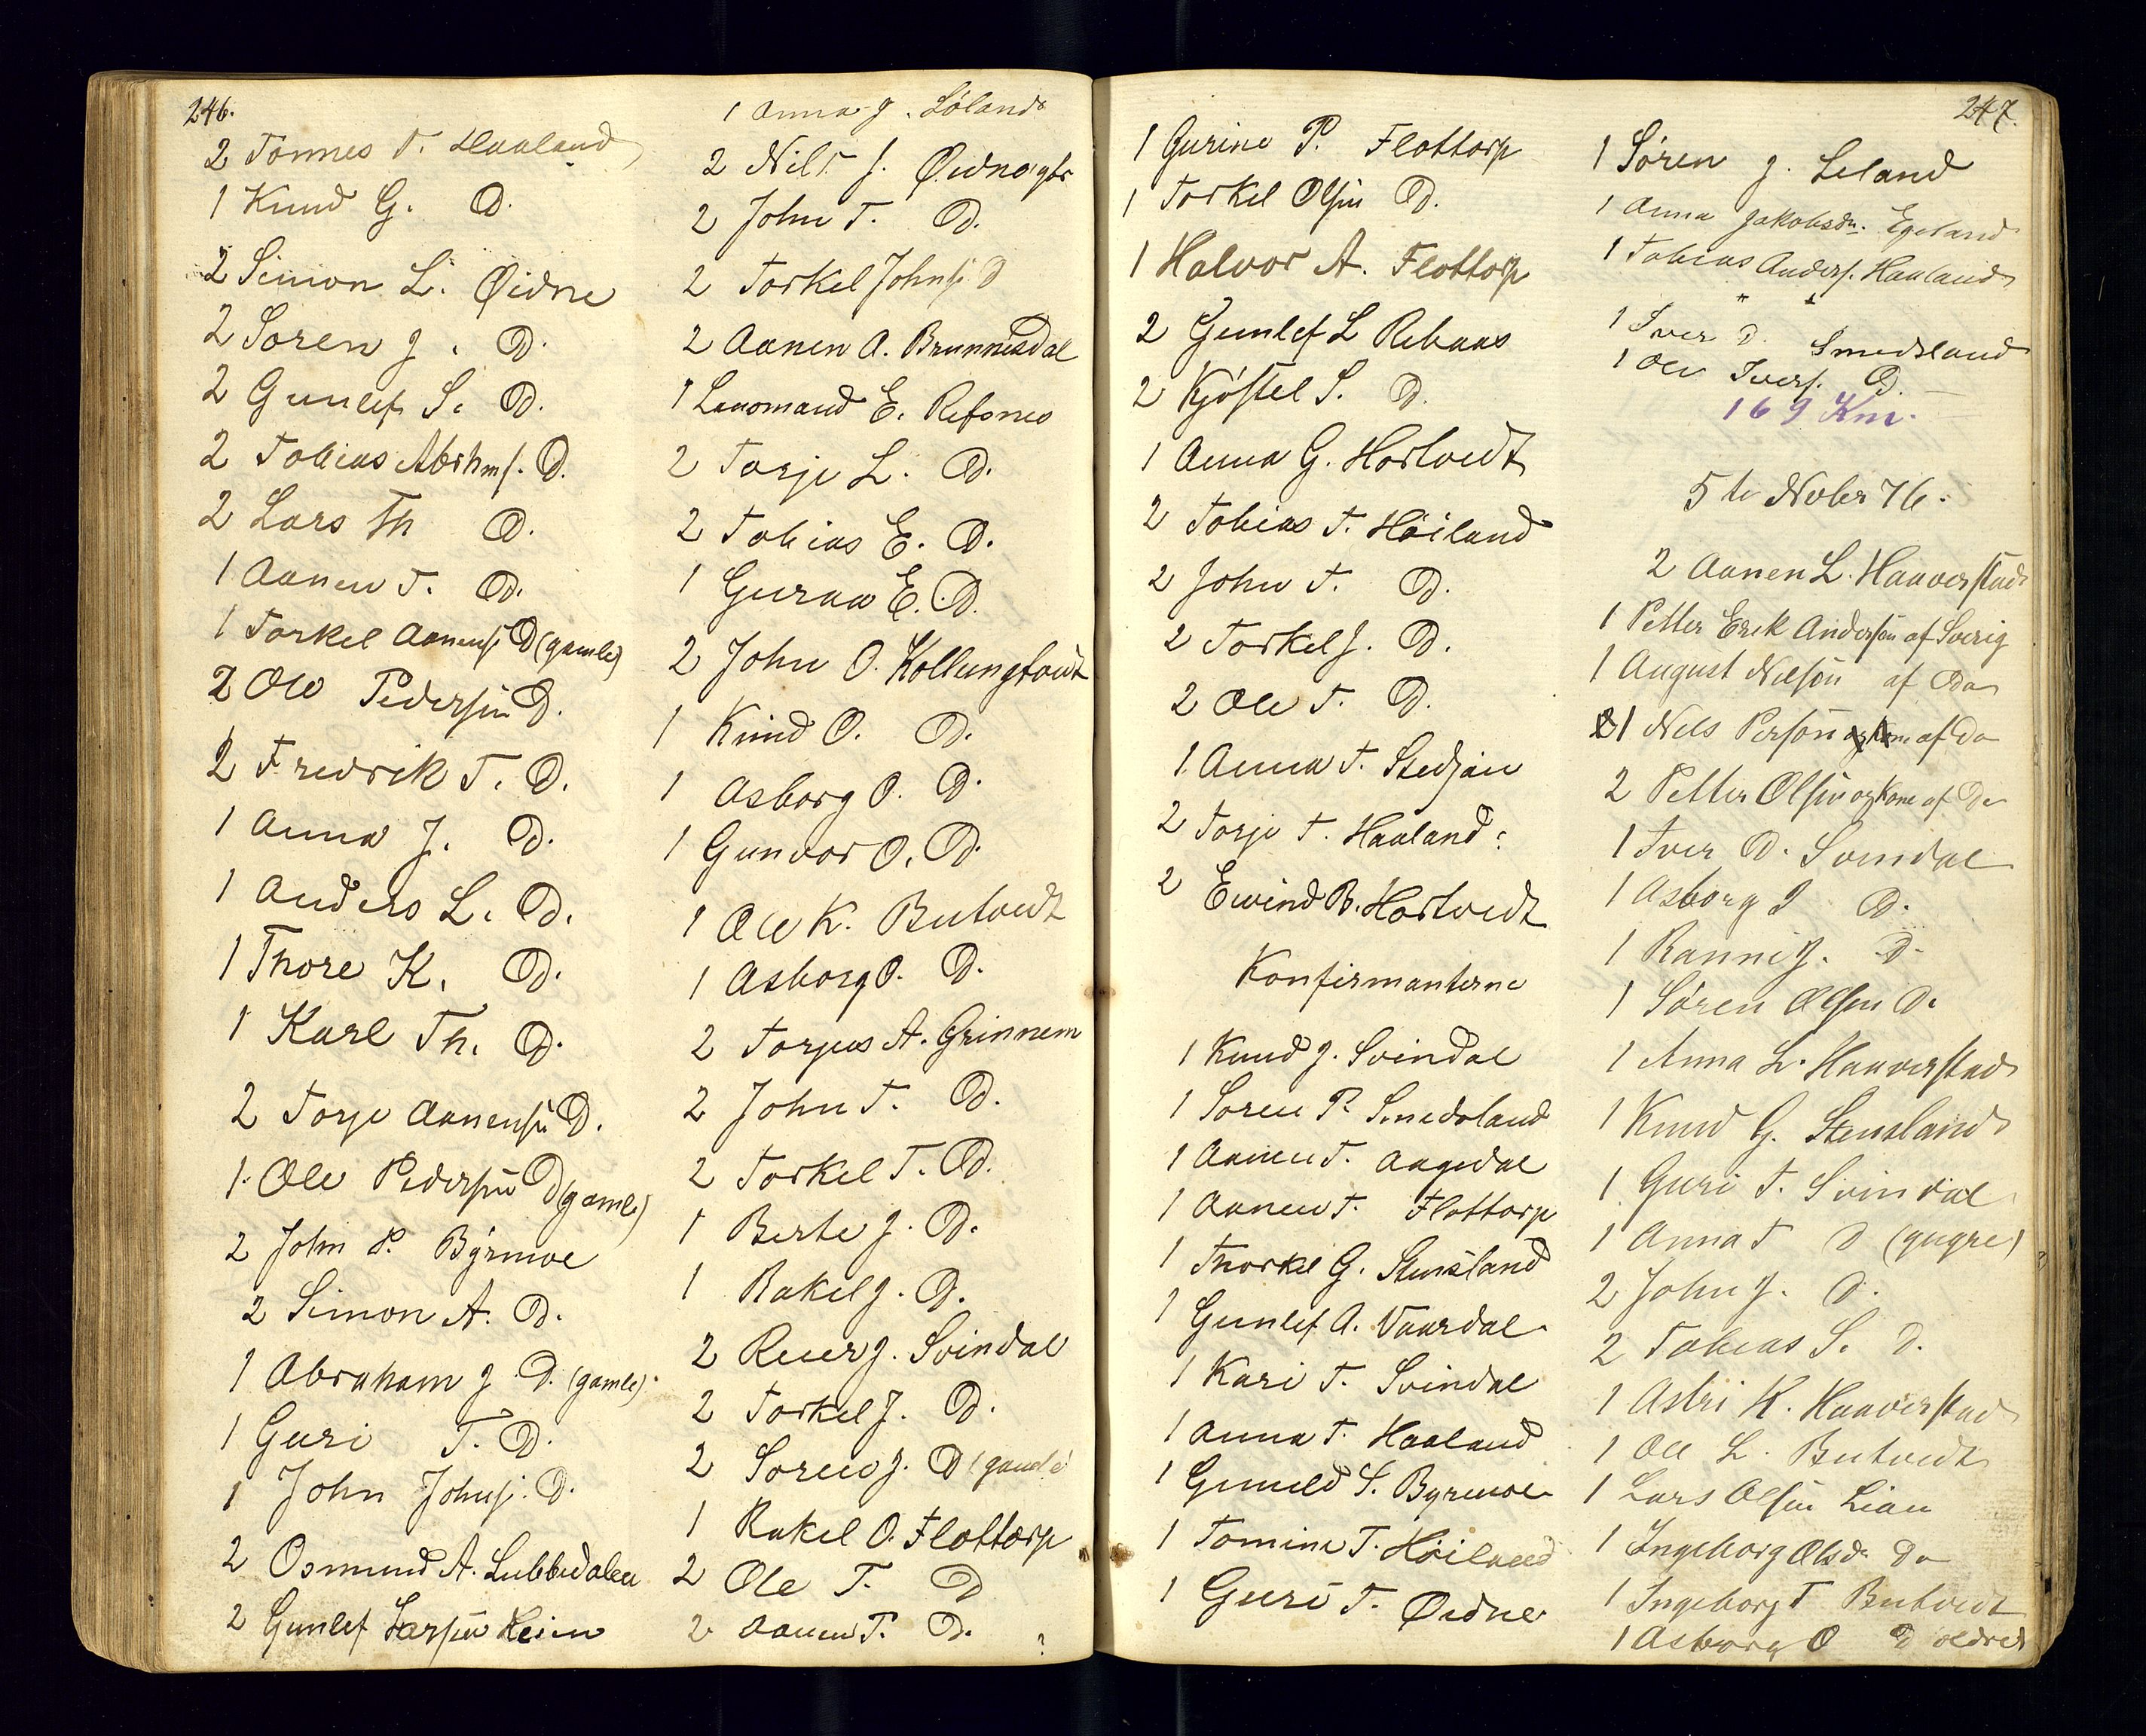 246.
2 Tønnes T. Haaland
1 Knud G. D.
2 Simon L. Øidne
2 Søren J. D.
2 Gunlef S. D.
2 Tobias Abrhms. D.
2 Lars Th D.
1 Aanen T. D.
1 Torkel Aanens. D (gamle)
2 Ole Pedersen D.
2 Fredrik T. D.
1 Anna J. D.
1 Anders L. D.
1 Thore K. D.
1 Karl Th. D.
2 Torje Aanensen D.
1 Ole Pedersen D (gamle)
2 John P. Byrmoe
2 Simon A. D.
1 Abraham J. D. (gamle).
1 Guri T. D.
1 John Johns. D.
2 Osmund A. Lubbedalen
2 Gunlef Larsen Heim
1 Anna J. Løland
2 Nils J.
2 John T. D.
2 Torkel Johns. D
2 Aanen A. Brunnesdal
1 E. Refsnes
2 Torje L. D.
2 Tobias E. D.
1 Guraa E. D.
2 John O. Kollungtveit
1 Knud O. D.
1 Asborg O. D.
1 Gunvor O. D.
1 Ole K. Butvedt
1 Asborg O. D.
2 Torjus A. Grinnem
2 John T. D.
2 Torkel T. D.
1 Berte J. D.
1 Rakel J. D.
2 Reier J. Svindal
2 Torkel J. D.
2 Søren J. D (gamle)
1 Rakel O. Flottorp
2 Ole T. D
2 Aanen T. D.
247.
1 Gurine P. Flottorp
1 Torkel Olsen D.
1 Halvor A. Flottorp
2 Gunlef L Rebaas
2 Kjøstel S. D.
1 Anna G. Hortvedt
2 Tobias T. Høiland
2 John T. D.
2 Torkel J. D.
2 Ole T. D.
1 Anna T. Stedjan
2 Torje T. Haaland
2 Eivind B. Hortvedt
Konfirmanterne
1 Knud J. Svindal
1 Søren P. Smedsland
1 Aanen T. Aagedal
1 Aanen T. Flottorp
1 Thorkel G. Stensland
1 Gunlef A. Vaardal
1 Kari T. Svindal
1 Anna T. Haaland
1 Gunuld S. Byremoe
1 Tomine T. Høiland
1 Guri T. Øidne
1 Søren J. Leland
1 Anna Jakobsdr. Egeland
1 Tobias Anders. Haaland
1 Iver D. Smedsland
1 Ole Ivers. D.
169 Km.
5te Nvbr 76.
2 Aanen L. Haaverstad
1 Petter Erik Andersøn af Sverig
1 August Nilsøn af Do
1 Nels Persøn og kone af Do
2 Petter Olsen og Kone af Do
1 Iver D. Svindal
1 Asborg I D.
1 Ranni J. D.
1 Søren Olsen D.
1 Anna L. Haaverstad
1 Knud G. Stensland
1 Guri T. Svindal
1 Anna T D (yngre)
2 John J. D.
2 Tobias S. D.
1 Astri K. Haaverstad
1 Ole L. Butvedt
1 Lars Olsen Lian
1 Ingeborg Olsdr Do
1 Ingeborg T Butvedt
1 Asborg O D ældre